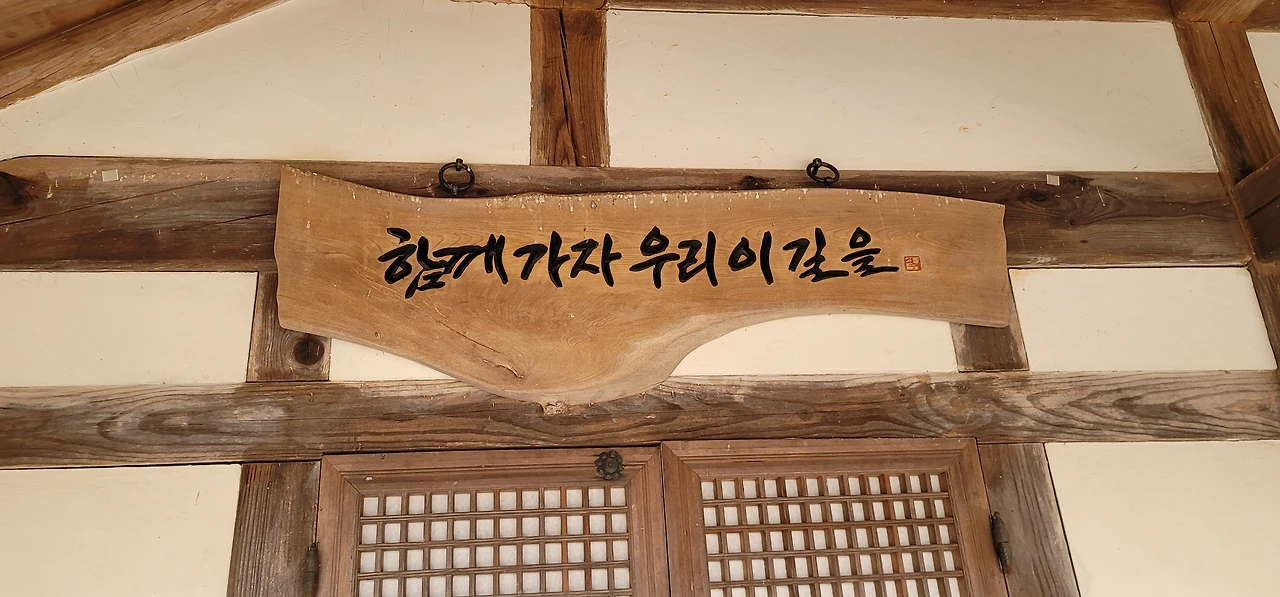 함께 가자 우리 이 길을